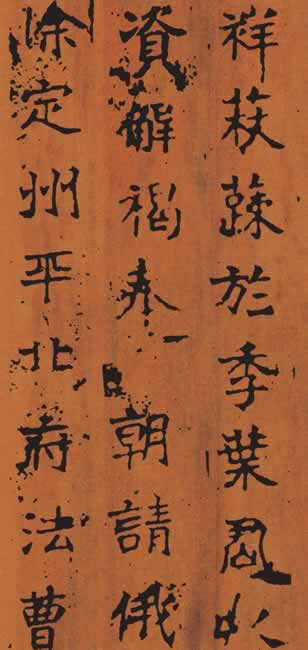 祥荴蔬於季葉君以
資解褐奉朝請俄
除定州平北府法曹